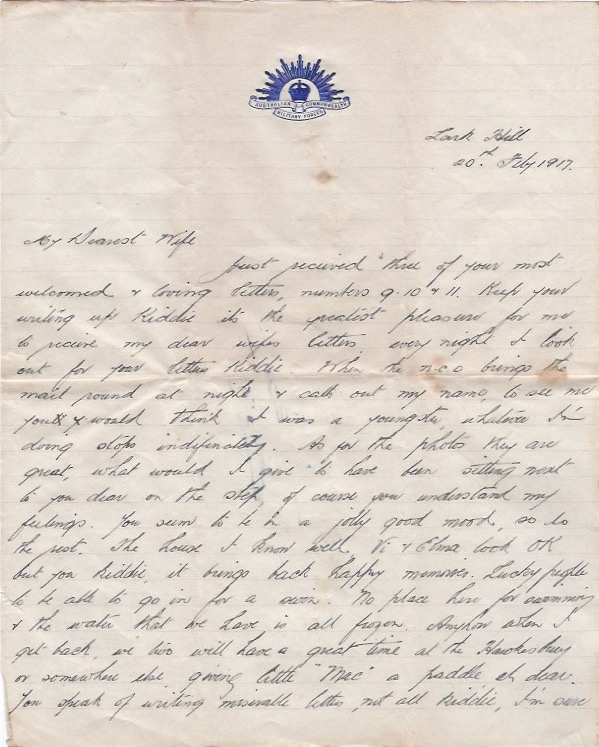 AUSTRALIAN COMMONWEALTH
MILITARY FORCES
Lark Hill
20th. Feby 1917.
My Dearest Wife
Just received three of your most
welcomed & loving letters, numbers 9.10 & 11. Keep your
writing up Kiddie its the greatist pleasure for me
to receive my dear wifes letters every night I look
out for your letters Kiddie. When the n.c.o brings the
mail round at night & calls out my name, to see me
you would think I was a youngster, whatever I'm
doing stops indifinately. As for the photos they are
great, what would I give to have been sitting next
to you dear on the step, of course you understand my
feelings. You seem to be in a jolly good mood, so do
the rest. The house I know well, Vi & Elma look OK
but you Kiddie, it brings back happy memories. Lucky people
to be able to go in for a swim. No place here for swimming
& the water that we have is all frozen. Anyhow when I
get back, we two will have a great time at the Hawkesbury
or somewhere else giving little "Mac" a paddle eh dear.
You speak of writing miserable letters, not all Kiddie, I'm sure